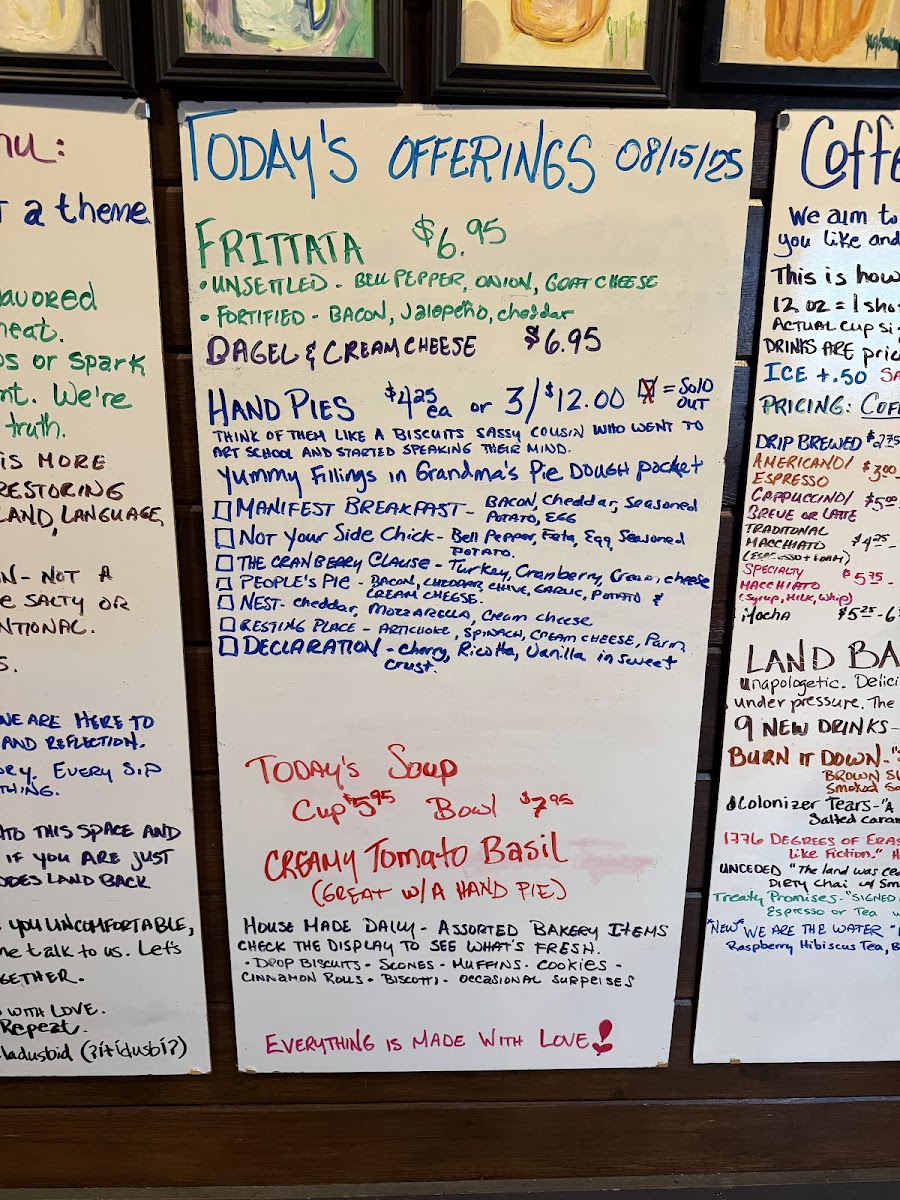 nu:
a theme
lavored
heat.
os or spark
nt. We're
truth.
IS MORE
RESTORING
LAND, LANGUAGE,
N - NOT A
SALTY OR
NTIONAL.
S.
WE ARE HERE TO
AND REFLECTION.
ORY. EVERY SIP
THING.
NTO THIS SPACE AND
IF YOU ARE JUST
LAND BACK
YOU UNCOMFORTABLE,
me talk to us. Let's
GETHER.
WITH LOVE.
Repeat.
ladusbid (ʔítídusbíʔ)
TODAY'S OFFERINGS 08/15/25
FRITTATA $6.95
• UNSETTLED - BELL PEPPER, ONION, GOAT CHEESE
• FORTIFIED - BACON, Jalepeño, cheddar
BAGEL & CREAM CHEESE $6.95
HAND PIES $4.25 ea or 3/$12.00 ☒ = SOLD OUT
THINK OF THEM LIKE A BISCUITS SASSY COUSIN WHO WENT TO
ART SCHOOL AND STARTED SPEAKING THEIR MIND.
Yummy Fillings in Grandma's Pie DOUGH pocket
☐ MANIFEST BREAKFAST - BACON, cheddar, Seasoned
POTATO, EGG
☐ NOT YOUR SIDE CHICK - Bell Pepper, Feta, Egg, Seasoned
POTATO.
☐ THE CRANBERY CLAUSE - Turkey, Cranberry, Cream cheese
☐ PEOPLE'S PIE - BACON, CHEDDAR, CHIVE, GARLIC, POTATO &
CREAM CHEESE.
☐ NEST - cheddar, MOZZARELLA, Cream cheese
☐ RESTING PLACE - ARTICHOKE, SPINACH, CREAM CHEESE, Parm
☐ DECLARATION - cherry, Ricotta, Vanilla in sweet
crust.
TODAY'S Soup
Cup $5.95 Bowl $7.95
CREAMY Tomato Basil
(GREAT W/A HAND PIE)
HOUSE MADE DAILY - ASSORTED BAKERY ITEMS
CHECK THE DISPLAY TO SEE WHAT'S FRESH.
• DROP BISCUITS - SCONES - MUFFINS - COOKIES -
CINNAMON ROLLS - BISCOTTI - OCCASIONAL SURPRISES
EVERYTHING IS MADE WITH LOVE!
Coffe
We aim to
you like and
This is how
12 oz = 1 sho
ACTUAL cup si
DRINKS ARE pric
ICE +.50 SA
PRICING: COF
DRIP BREWED $2.75
AMERICANO/ $3.00
ESPRESSO
CAPPUCCINO/ $5.00
BREVE OR LATTE
TRADITONAL
MACCHIATO $4.25-
(ESPRESSO + FOAM)
SPECIALTY $5.75-
MACCHIATO
(Syrup, Milk, Whip)
Mocha $5.25-6
LAND BA
unapologetic. Delici
under pressure. The
9 NEW DRINKS -
BURN IT DOWN - "
BROWN SU
Smoked Sa
Colonizer Tears - "A
Salted Caram
1776 DEGREES OF ERAS
like Fiction." H
UNCEDED "The land was ce
DIRTY chai w/ Sm
Treaty Promises - "SIGNED
Espresso or Tea w
*NEW* WE ARE THE WATER "
Raspberry Hibiscus Tea, B